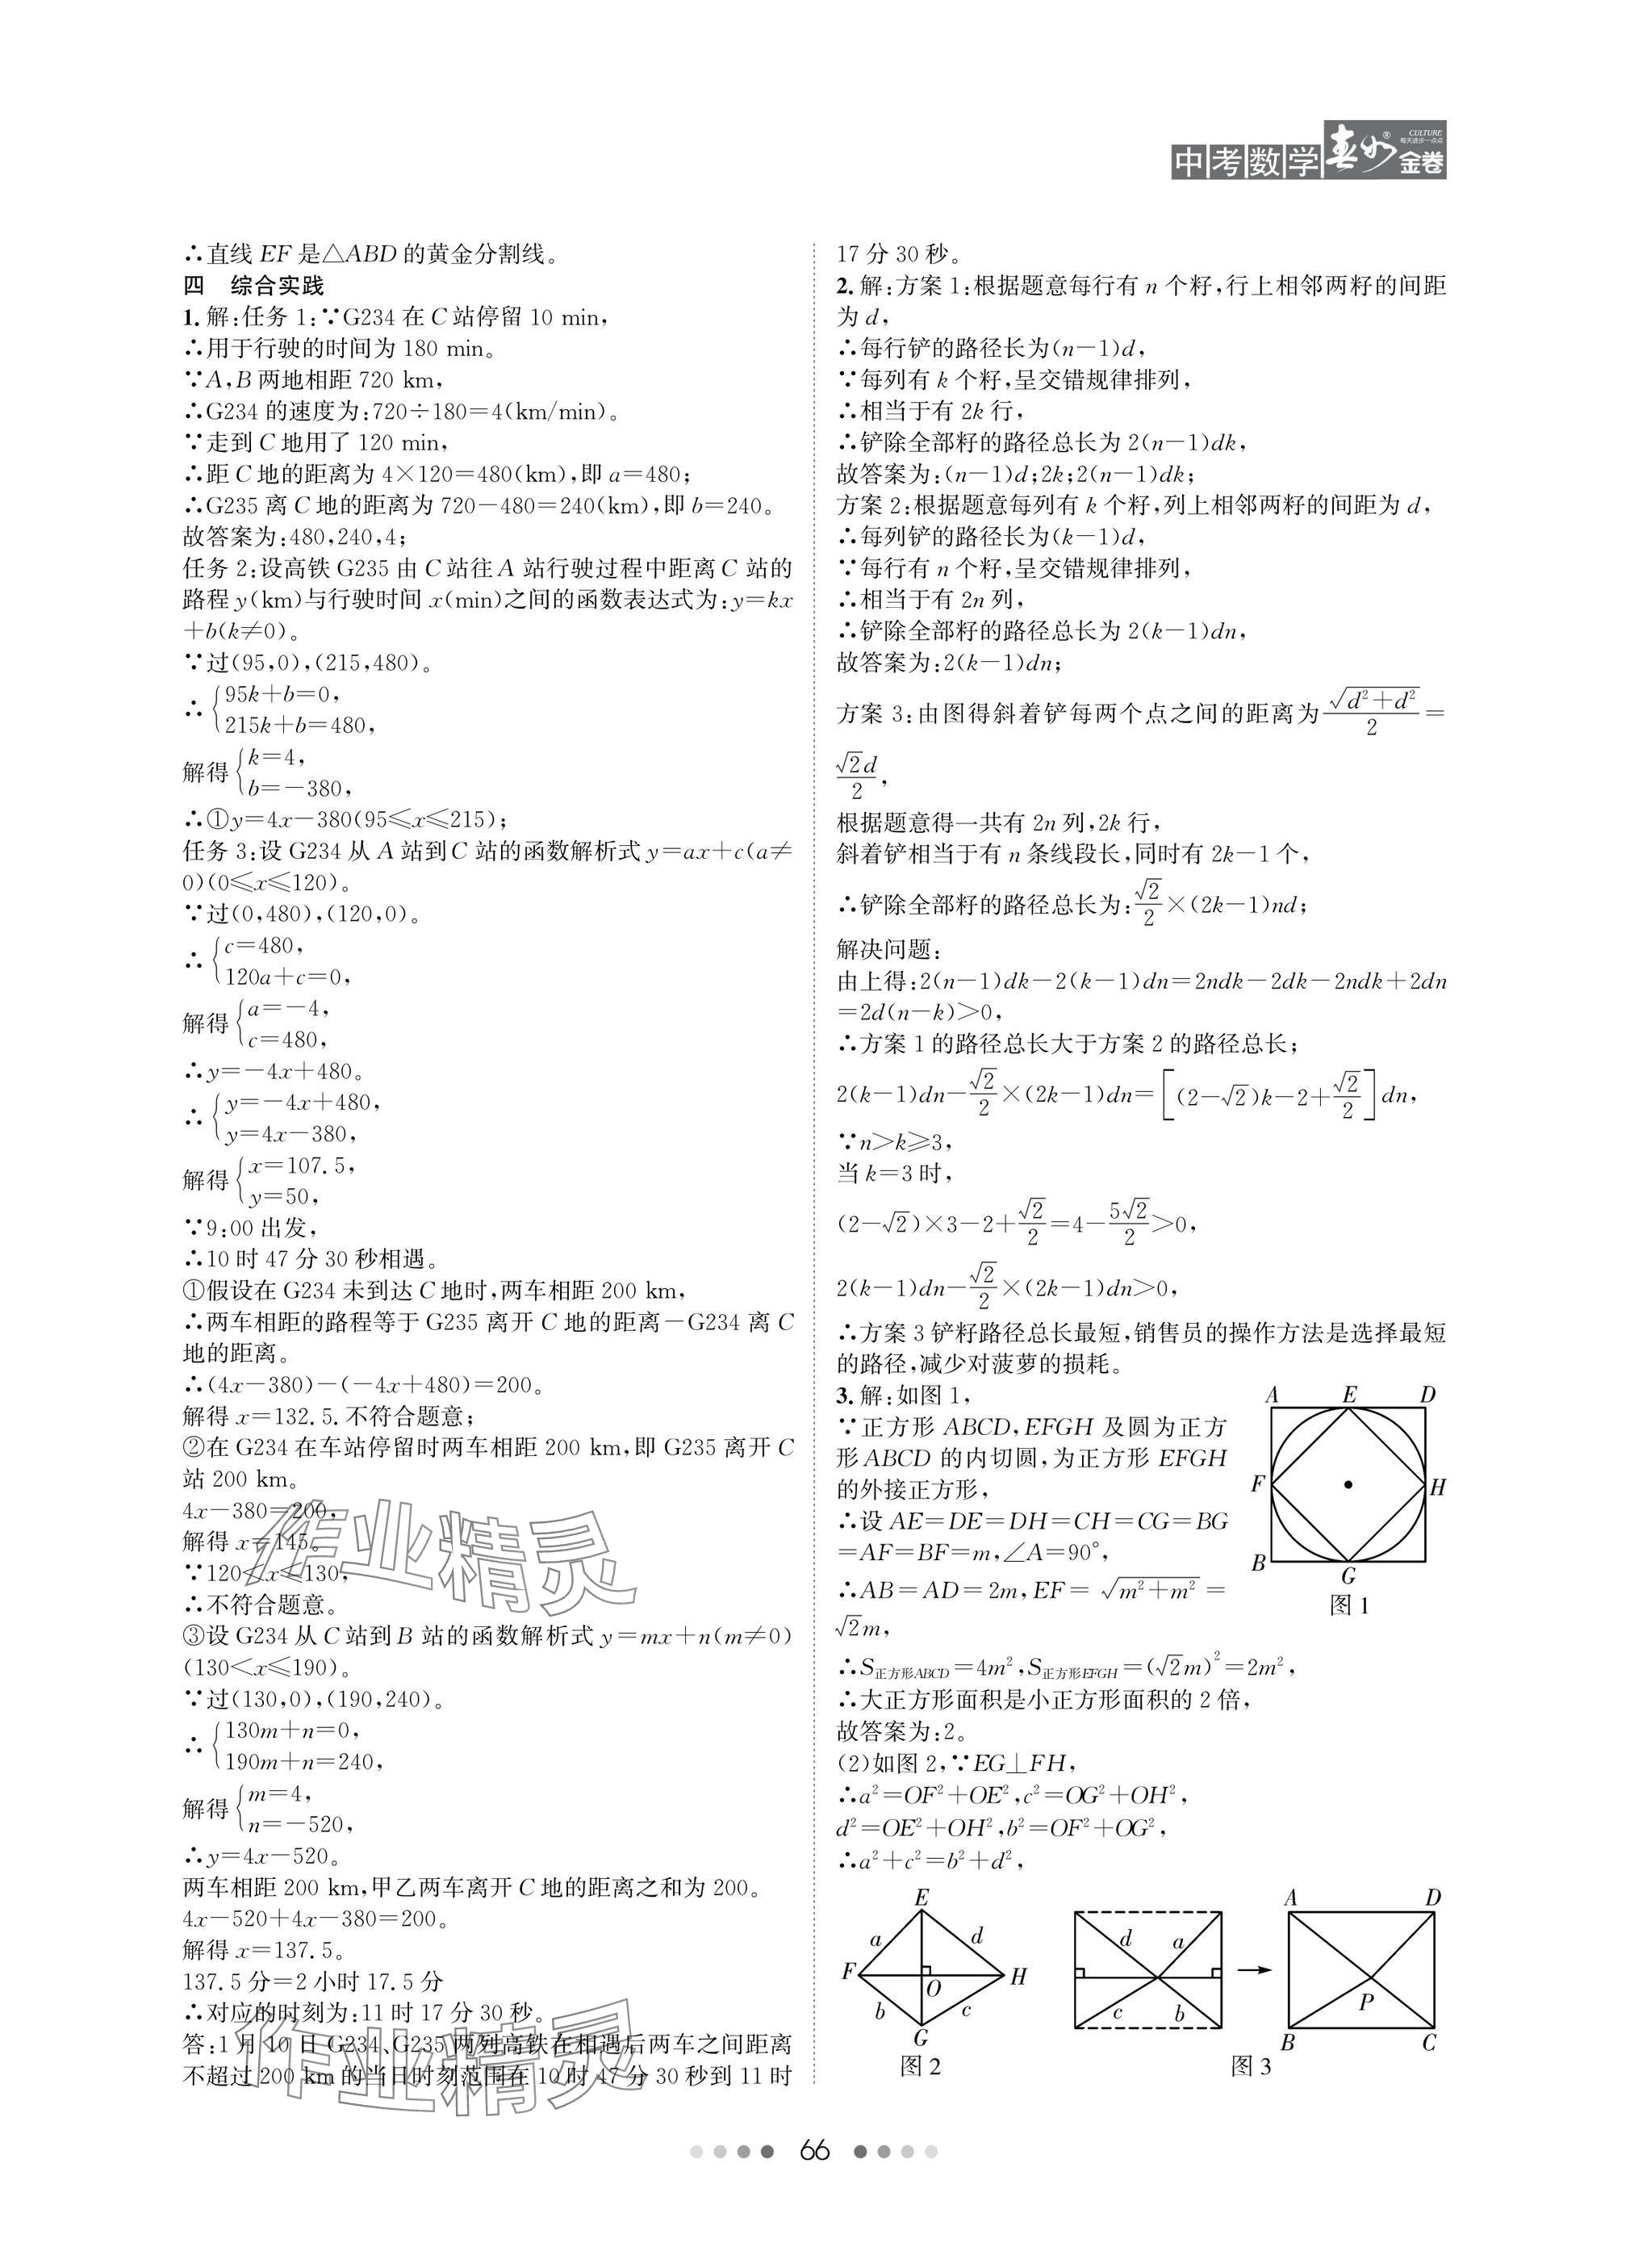 中考数学 春如®金卷
CULTURE
每天进步一点点
∴直线 EF 是△ABD 的黄金分割线。
四　综合实践
1. 解:任务 1:∵G234 在 C 站停留 10 min,
∴用于行驶的时间为 180 min。
∵A,B 两地相距 720 km,
∴G234 的速度为:720÷180=4(km/min)。
∵走到 C 地用了 120 min,
∴距 C 地的距离为 4×120=480(km),即 a=480;
∴G235 离 C 地的距离为 720−480=240(km),即 b=240。
故答案为:480,240,4;
任务 2:设高铁 G235 由 C 站往 A 站行驶过程中距离 C 站的
路程 y(km)与行驶时间 x(min)之间的函数表达式为:y=kx
+b(k≠0)。
∵过(95,0),(215,480)。
∴{95k+b=0,
215k+b=480,
解得{k=4,
b=−380,
∴①y=4x−380(95≤x≤215);
任务 3:设 G234 从 A 站到 C 站的函数解析式 y=ax+c(a≠
0)(0≤x≤120)。
∵过(0,480),(120,0)。
∴{c=480,
120a+c=0,
解得{a=−4,
c=480,
∴y=−4x+480。
∴{y=−4x+480,
y=4x−380,
解得{x=107.5,
y=50,
∵9:00 出发,
∴10 时 47 分 30 秒相遇。
①假设在 G234 未到达 C 地时,两车相距 200 km,
∴两车相距的路程等于 G235 离开 C 地的距离−G234 离 C
地的距离。
∴(4x−380)−(−4x+480)=200。
解得 x=132.5.不符合题意;
②在 G234 在车站停留时两车相距 200 km,即 G235 离开 C
站 200 km。
4x−380=200,
解得 x=145。
∵120≤x≤130,
∴不符合题意。
③设 G234 从 C 站到 B 站的函数解析式 y=mx+n(m≠0)
(130<x≤190)。
∵过(130,0),(190,240)。
∴{130m+n=0,
190m+n=240,
解得{m=4,
n=−520,
∴y=4x−520。
两车相距 200 km,甲乙两车离开 C 地的距离之和为 200。
4x−520+4x−380=200。
解得 x=137.5。
137.5 分=2 小时 17.5 分
∴对应的时刻为:11 时 17 分 30 秒。
答:1 月 10 日 G234、G235 两列高铁在相遇后两车之间距离
不超过 200 km 的当日时刻范围在 10 时 47 分 30 秒到 11 时
17 分 30 秒。
2. 解:方案 1:根据题意每行有 n 个籽,行上相邻两籽的间距
为 d,
∴每行铲的路径长为(n−1)d,
∵每列有 k 个籽,呈交错规律排列,
∴相当于有 2k 行,
∴铲除全部籽的路径总长为 2(n−1)dk,
故答案为:(n−1)d;2k;2(n−1)dk;
方案 2:根据题意每列有 k 个籽,列上相邻两籽的间距为 d,
∴每列铲的路径长为(k−1)d,
∵每行有 n 个籽,呈交错规律排列,
∴相当于有 2n 列,
∴铲除全部籽的路径总长为 2(k−1)dn,
故答案为:2(k−1)dn;
方案 3:由图得斜着铲每两个点之间的距离为√(d²+d²)/2=
√2d/2,
根据题意得一共有 2n 列,2k 行,
斜着铲相当于有 n 条线段长,同时有 2k−1 个,
∴铲除全部籽的路径总长为:√2/2×(2k−1)nd;
解决问题:
由上得:2(n−1)dk−2(k−1)dn=2ndk−2dk−2ndk+2dn
=2d(n−k)>0,
∴方案 1 的路径总长大于方案 2 的路径总长;
2(k−1)dn−√2/2×(2k−1)dn=[(2−√2)k−2+√2/2]dn,
∵n>k≥3,
当 k=3 时,
(2−√2)×3−2+√2/2=4−5√2/2>0,
2(k−1)dn−√2/2×(2k−1)dn>0,
∴方案 3 铲籽路径总长最短,销售员的操作方法是选择最短
的路径,减少对菠萝的损耗。
3. 解:如图 1,
∵正方形 ABCD,EFGH 及圆为正方
形 ABCD 的内切圆,为正方形 EFGH
的外接正方形,
∴设 AE=DE=DH=CH=CG=BG
=AF=BF=m,∠A=90°,
∴AB=AD=2m,EF=√(m²+m²)=
√2m,
∴S正方形ABCD=4m²,S正方形EFGH=(√2m)²=2m²,
∴大正方形面积是小正方形面积的 2 倍,
故答案为:2。
(2)如图 2,∵EG⊥FH,
∴a²=OF²+OE²,c²=OG²+OH²,
d²=OE²+OH²,b²=OF²+OG²,
∴a²+c²=b²+d²,
A E D
F H
B G
图 1
E
a d
F O H
b c
G
图 2
d a
c b
A D
P
B C
图 3
作业精灵
作业精灵
66